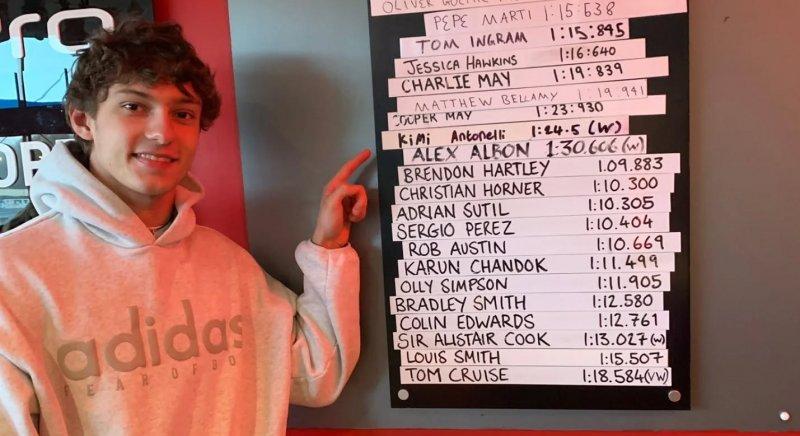 pro
OLIVER
PEPE MARTI 1:15:638
TOM INGRAM 1:15:845
JESSICA HAWKINS 1:16:640
CHARLIE MAY 1:19:839
MATTHEW BELLAMY 1:19.941
COOPER MAY 1:23:930
KiMi Antonelli 1:24.5 (W)
ALEX ALBON 1:30.606 (W)
BRENDON HARTLEY 1.09.883
CHRISTIAN HORNER 1:10.300
ADRIAN SUTIL 1:10.305
SERGIO PEREZ 1:10.404
ROB AUSTIN 1:10.669
KARUN CHANDOK 1:11.499
OLLY SIMPSON 1:11.905
BRADLEY SMITH 1:12.580
COLIN EDWARDS 1:12.761
SIR ALISTAIR COOK 1:13.027(W)
LOUIS SMITH 1:15.507
TOM CRUISE 1:18.584(VW)
adidas
FEAR OF GOD